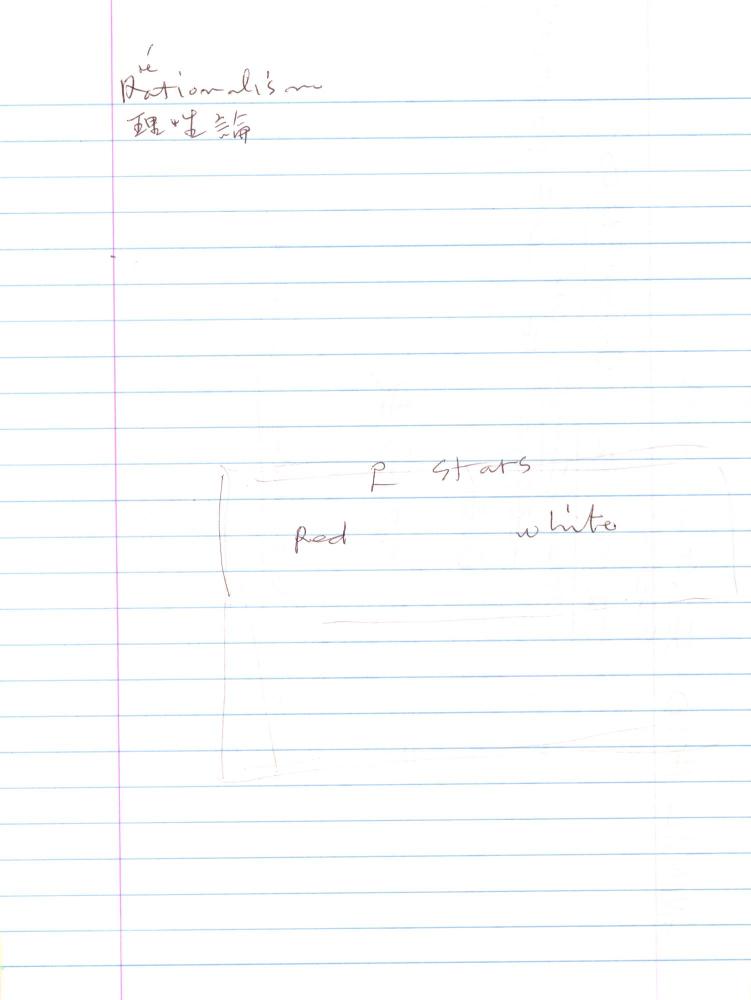 Rationalism
理性論
stars
Red white